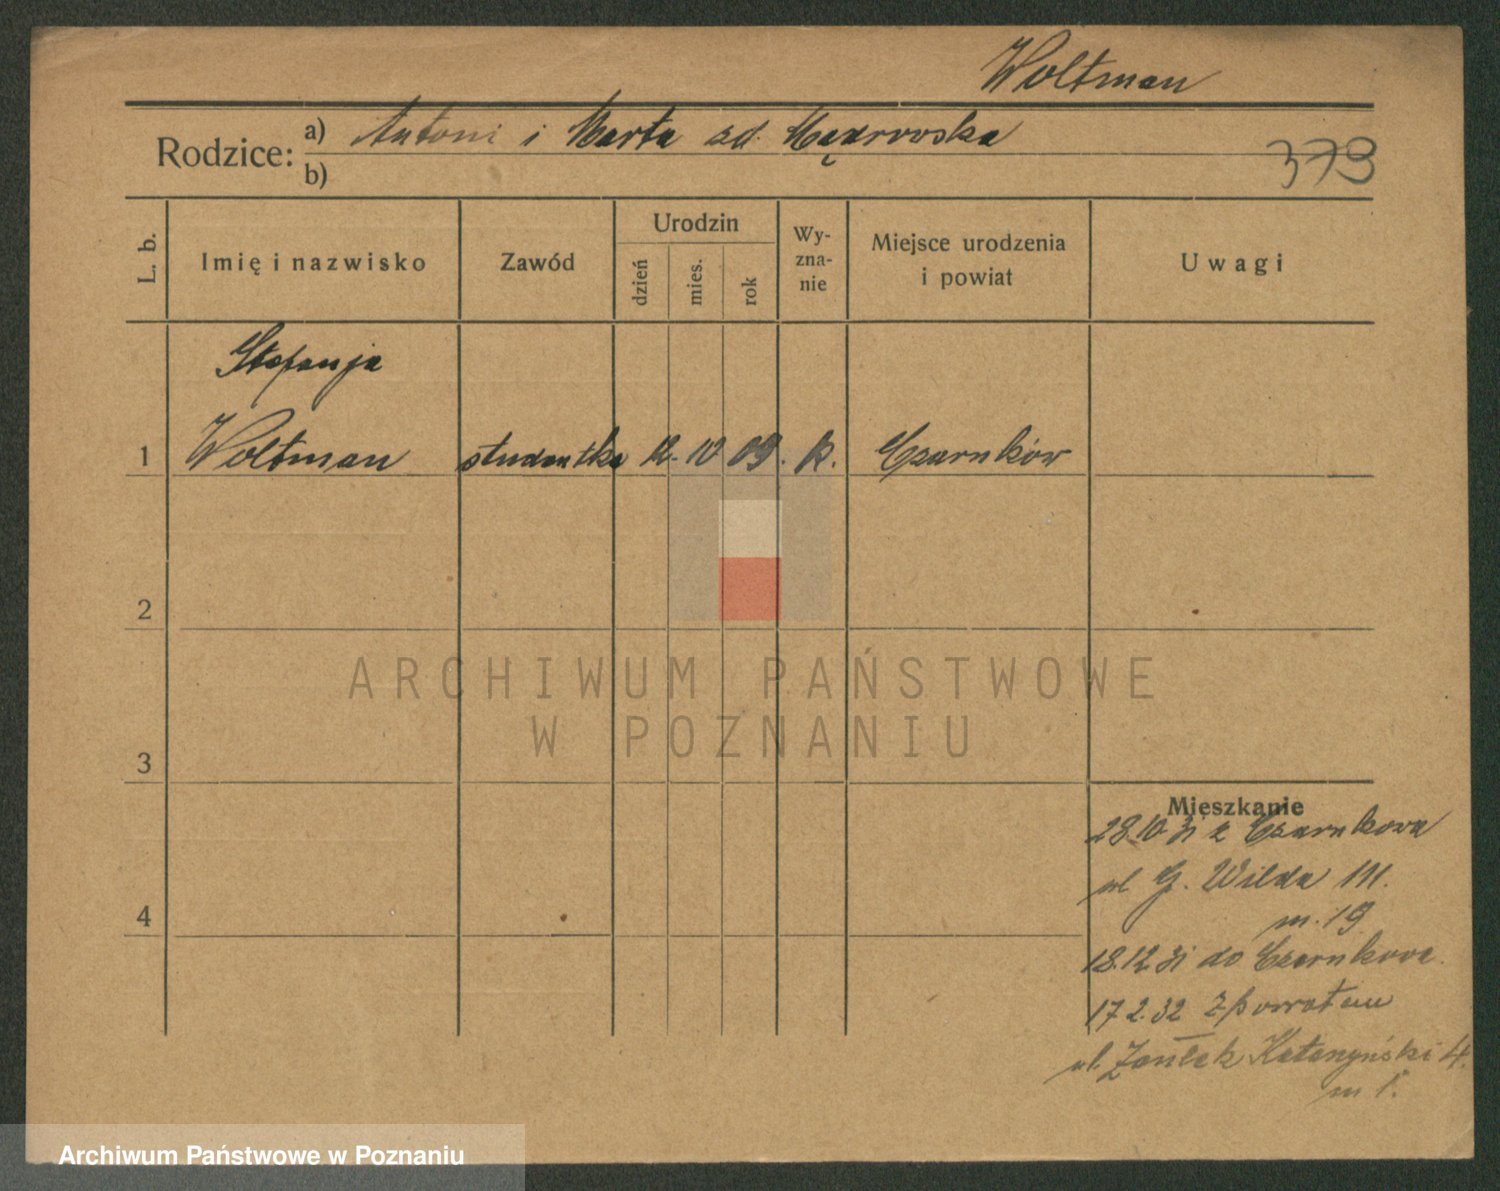 Woltman
Rodzice: a) Antoni i Marta zd.
b)
379
L. b.
Imię i nazwisko
Zawód
Urodzin
dzień
mies.
rok
Wy-
zna-
nie
Miejsce urodzenia
i powiat
Uwagi
Stefanja
1 Woltman studentka 12. 09. k. Czarnków
2
3
4
Mieszkanie
28.10.31 z Czarnkowa
ul G. Wilda 111.
m. 19
18.12.31 do Czarnkowa.
17 2.32 z powrotem
ul. Zaułek 4.
m 1.
ARCHIWUM PAŃSTWOWE
W POZNANIU
Archiwum Państwowe w Poznaniu